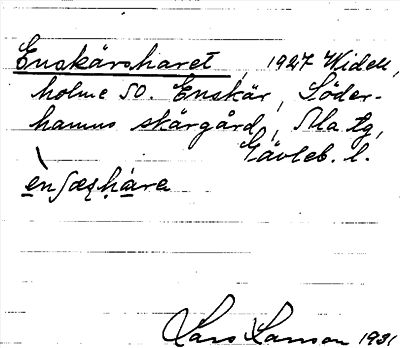 Enskärsharet, 1927 Widell,
holme SO. Enskär, Söder-
hamns skärgård, Ala tg,
Gävleb. l.
è̱nʃæʂḥa̱re
Lars Larson 1931